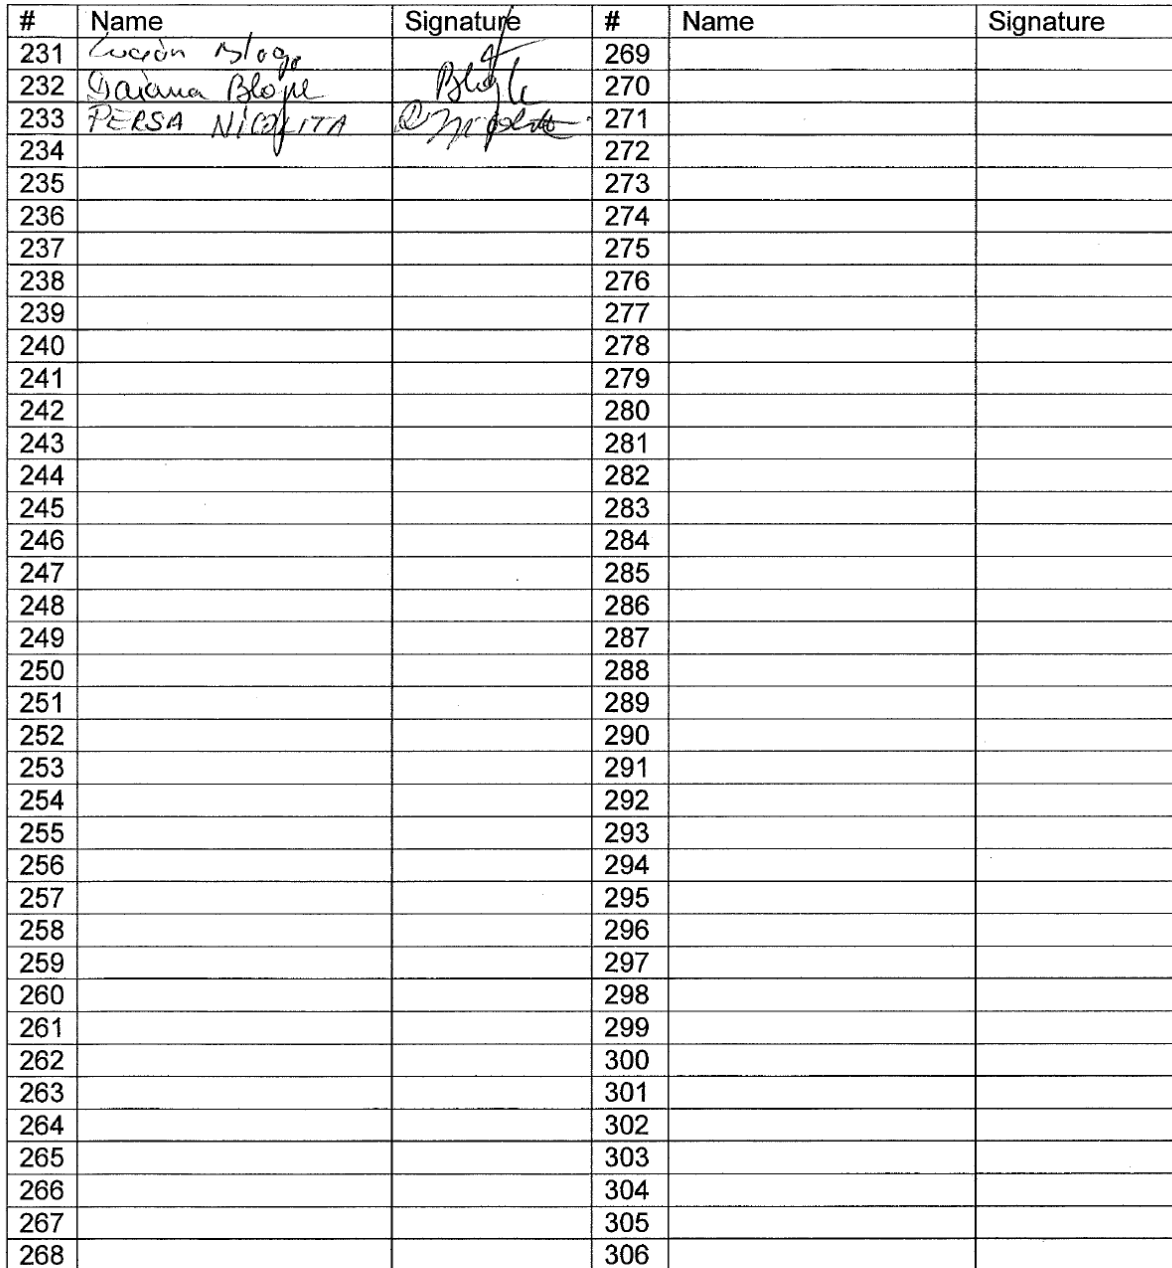 # Name Signature # Name Signature
231 Lucian Bloga 269
232 Daiana Blogu 270
233 PERSA NICOLITA 271
234 272
235 273
236 274
237 275
238 276
239 277
240 278
241 279
242 280
243 281
244 282
245 283
246 284
247 285
248 286
249 287
250 288
251 289
252 290
253 291
254 292
255 293
256 294
257 295
258 296
259 297
260 298
261 299
262 300
263 301
264 302
265 303
266 304
267 305
268 306